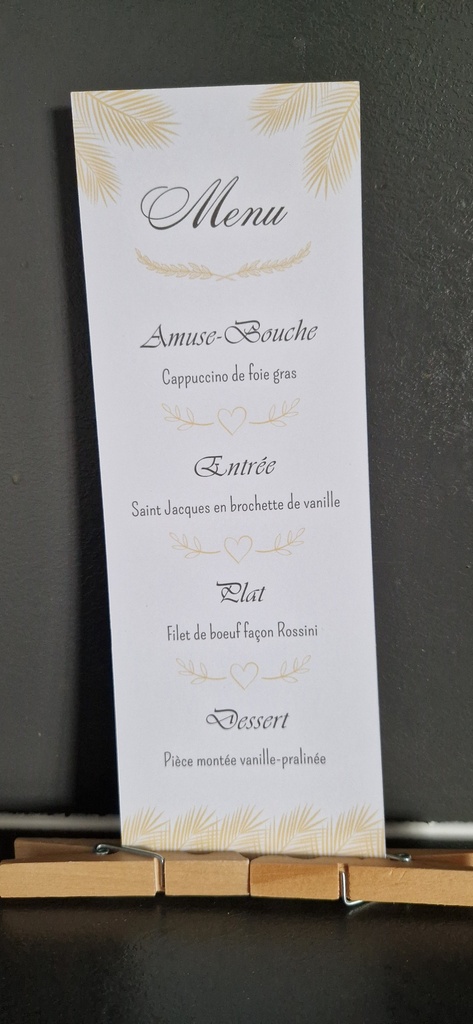 Menu
Amuse-Bouche
Cappuccino de foie gras
Entrée
Saint Jacques en brochette de vanille
Plat
Filet de boeuf façon Rossini
Dessert
Pièce montée vanille-pralinée